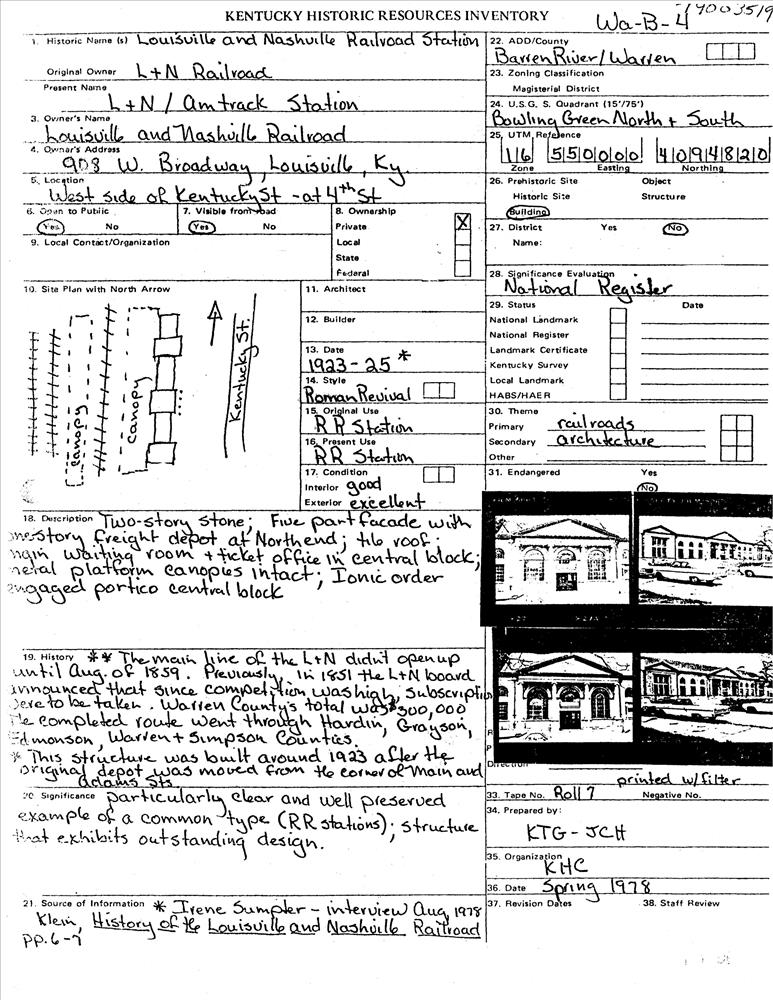 KENTUCKY HISTORIC RESOURCES INVENTORY
Wa-B-4
1. Historic Name (s) Louisville and Nashville Railroad Station
Original Owner L+N Railroad
Present Name
L+N / Amtrack Station
3. Owner's Name
Louisville and Nashville Railroad
4. Owner's Address
908 W. Broadway, Louisville, Ky.
5. Location
West side of Kentucky St - at 4th St
6. Open to Public
Yes No
7. Visible from road
Yes No
8. Ownership
Private X
Local
State
Federal
9. Local Contact/Organization
10. Site Plan with North Arrow
canopy
canopy
Kentucky St.
11. Architect
12. Builder
13. Date
1923-25 *
14. Style
Roman Revival
15. Original Use
RR Station
16. Present Use
RR Station
17. Condition
Interior good
Exterior excellent
18. Description Two-story stone; Five part facade with
one story freight depot at North end; tile roof;
main waiting room + ticket office in central block;
metal platform canopies intact; Ionic order
engaged portico central block
19. History ** The main line of the L+N didn't open up
until Aug. of 1859. Previously, in 1851 the L+N board
announced that since competition was high, subscriptions
were to be taken. Warren County's total was $300,000
The completed route went through Hardin, Grayson,
Edmonson, Warren + Simpson Counties.
* This structure was built around 1923 after the
original depot was moved from the corner of Main and
Adams Sts.
20. Significance particularly clear and well preserved
example of a common type (RR stations); structure
that exhibits outstanding design.
21. Source of Information * Irene Sumpter - interview Aug, 1978
Klein, History of the Louisville and Nashville Railroad
pp. 6-7
22. ADD/County
Barren River/Warren
23. Zoning Classification
Magisterial District
24. U.S.G. S. Quadrant (15'/75')
Bowling Green North + South
25. UTM Reference
16 550000 4094820
Zone Easting Northing
26. Prehistoric Site Object
Historic Site Structure
Building
27. District Yes No
Name:
28. Significance Evaluation
National Register
29. Status Date
National Landmark
National Register
Landmark Certificate
Kentucky Survey
Local Landmark
HABS/HAER
30. Theme
Primary railroads
Secondary architecture
Other
31. Endangered Yes
No
Direction
printed w/filter
33. Tape No. Roll 7 Negative No.
34. Prepared by:
KTG-JCH
35. Organization
KHC
36. Date Spring 1978
37. Revision Dates 38. Staff Review